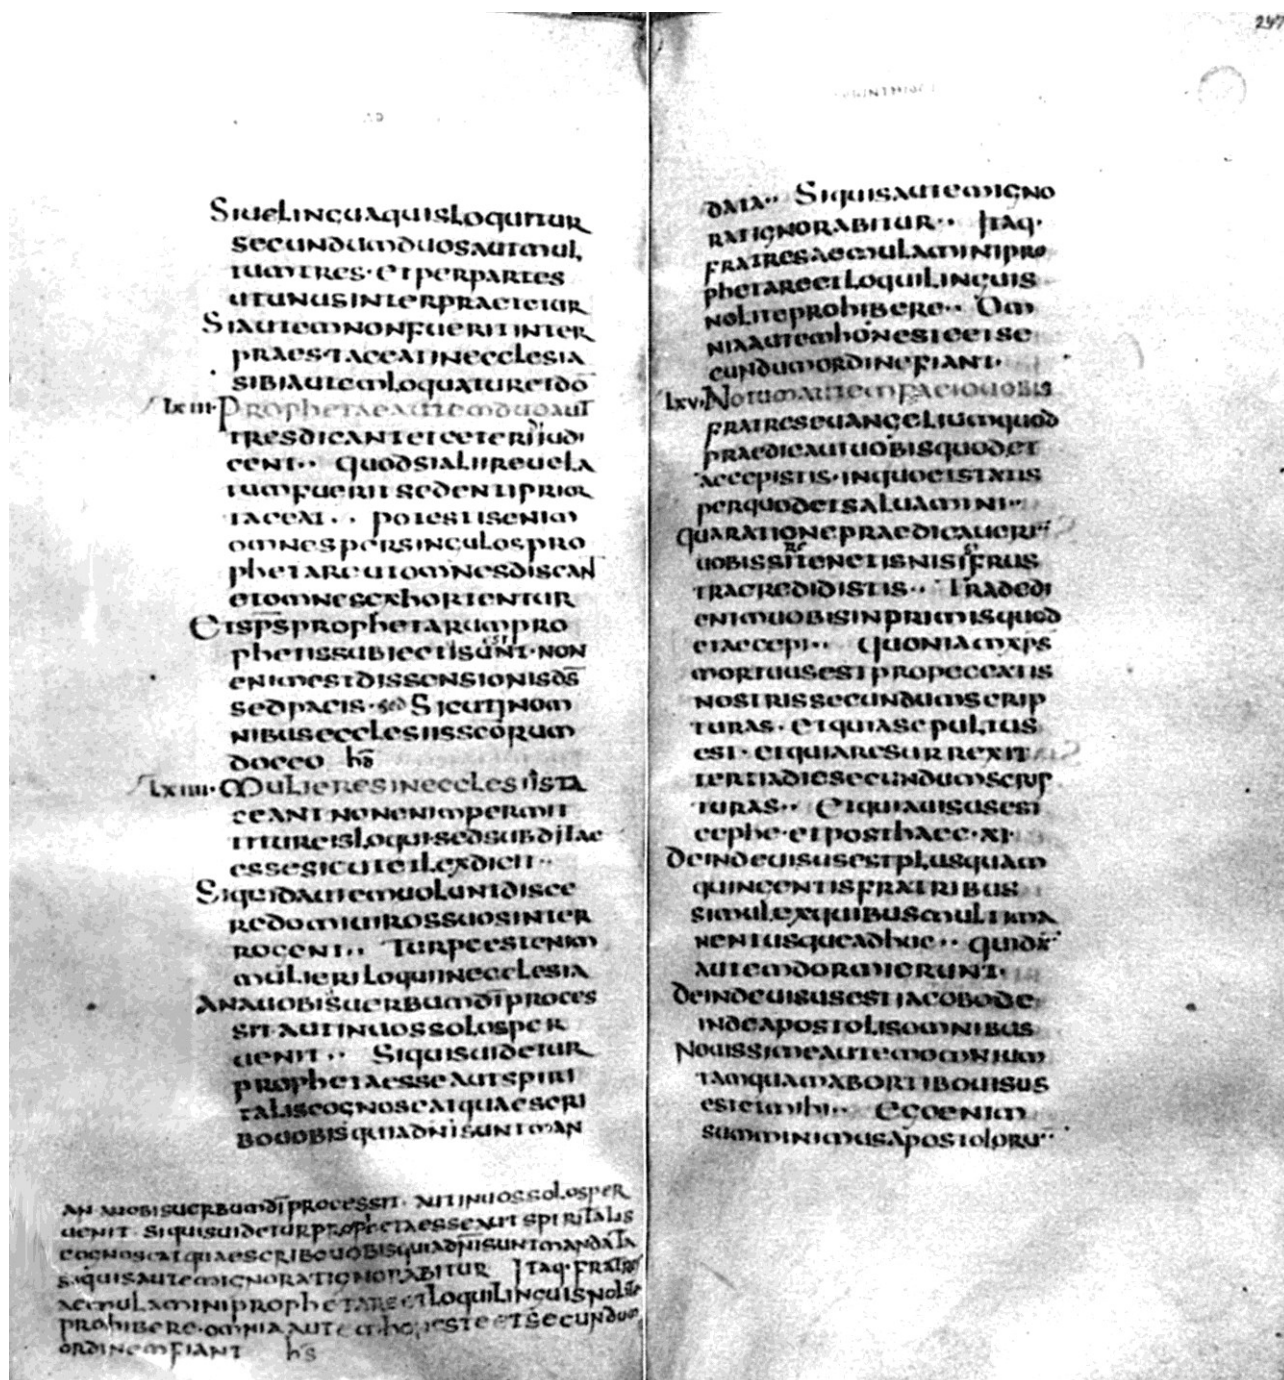 247
AD
CORINTHIOS
Siue lingua quis loquitur
secundum duos aut mul,
tum tres · et per partes
ut unus interpraetetur
Si autem non fuerit inter
praes · taceat in ecclesia
sibi autem loquatur et dō
lxiii · Prophetae autem duo aut
tres dicant et ceteri iudi
cent ·· quod si alii reuela
tum fuerit sedenti prior
taceat ·· potestis enim
omnes per singulos pro
phetare ut omnes discant
et omnes exhortentur
Et sp̄s prophetarum pro
phetis subiecti sunt · non
est
enim est dissensionis d̄s
sed pacis · sed Sicut in om
nibus ecclesiis sc̄orum
doceo hd̄
lxiiii · Mulieres in ecclesiis ta
ceant non enim permit
titur eis loqui · sed subditae
esse sicut et lex dicit ··
Si quid autem uolunt disce
re domi uiros suos inter
rogent ·· Turpe est enim
mulieri loqui in ecclesia
An a uobis uerbum dī proces
sit · aut in uos solos per
uenit ·· Si quis uidetur
propheta esse aut spiri
talis cognoscat quae scri
bo uobis quia dn̄i sunt man
An a uobis uerbum dī processit · aut in uos solos per
uenit Si quis uidetur propheta esse aut spiritalis
cognoscat quae scribo uobis quia dn̄i sunt mandata
Si quis autem ignorat ignorabitur Itaq · fratres
aemulamini prophetare et loqui linguis nolite
prohibere · omnia autem honeste et secundum
ordinem fiant hs̄
data ·· Si quis autem igno
rat ignorabitur ·· Itaq ·
fratres aemulamini pro
phetare et loqui linguis
nolite prohibere ·· Om
nia autem honeste et se
cundum ordine fiant ·
lxv · Notum autem facio uobis
fratres euangelium quod
praedicaui uobis quod et
accepistis · in quo et statis
per quod et saluamini ··
qua ratione praedicauerī
uobis si tenetis nisi frus
tra credidistis ·· Tradedi
enim uobis in primis quod
et accepi ·· quoniam xp̄s
mortuus est pro peccatis
nostris secundum scrip
turas · et quia sepultus
est · et quia resurrexit
tertia die secundum scrip
turas ·· Et quia uisus est
cephe · et post haec · xi ·
Deinde uisus est plus quam
quingentis fratribus
simul ex quibus multi ma
nent usque adhuc ·· quidā
autem dormierunt ·
Deinde uisus est iacobo de
inde apostolis omnibus
Nouissime autem omnium
tamquam abortibo uisus
est et mihi ·· Ego enim
sum minimus apostolorū ··